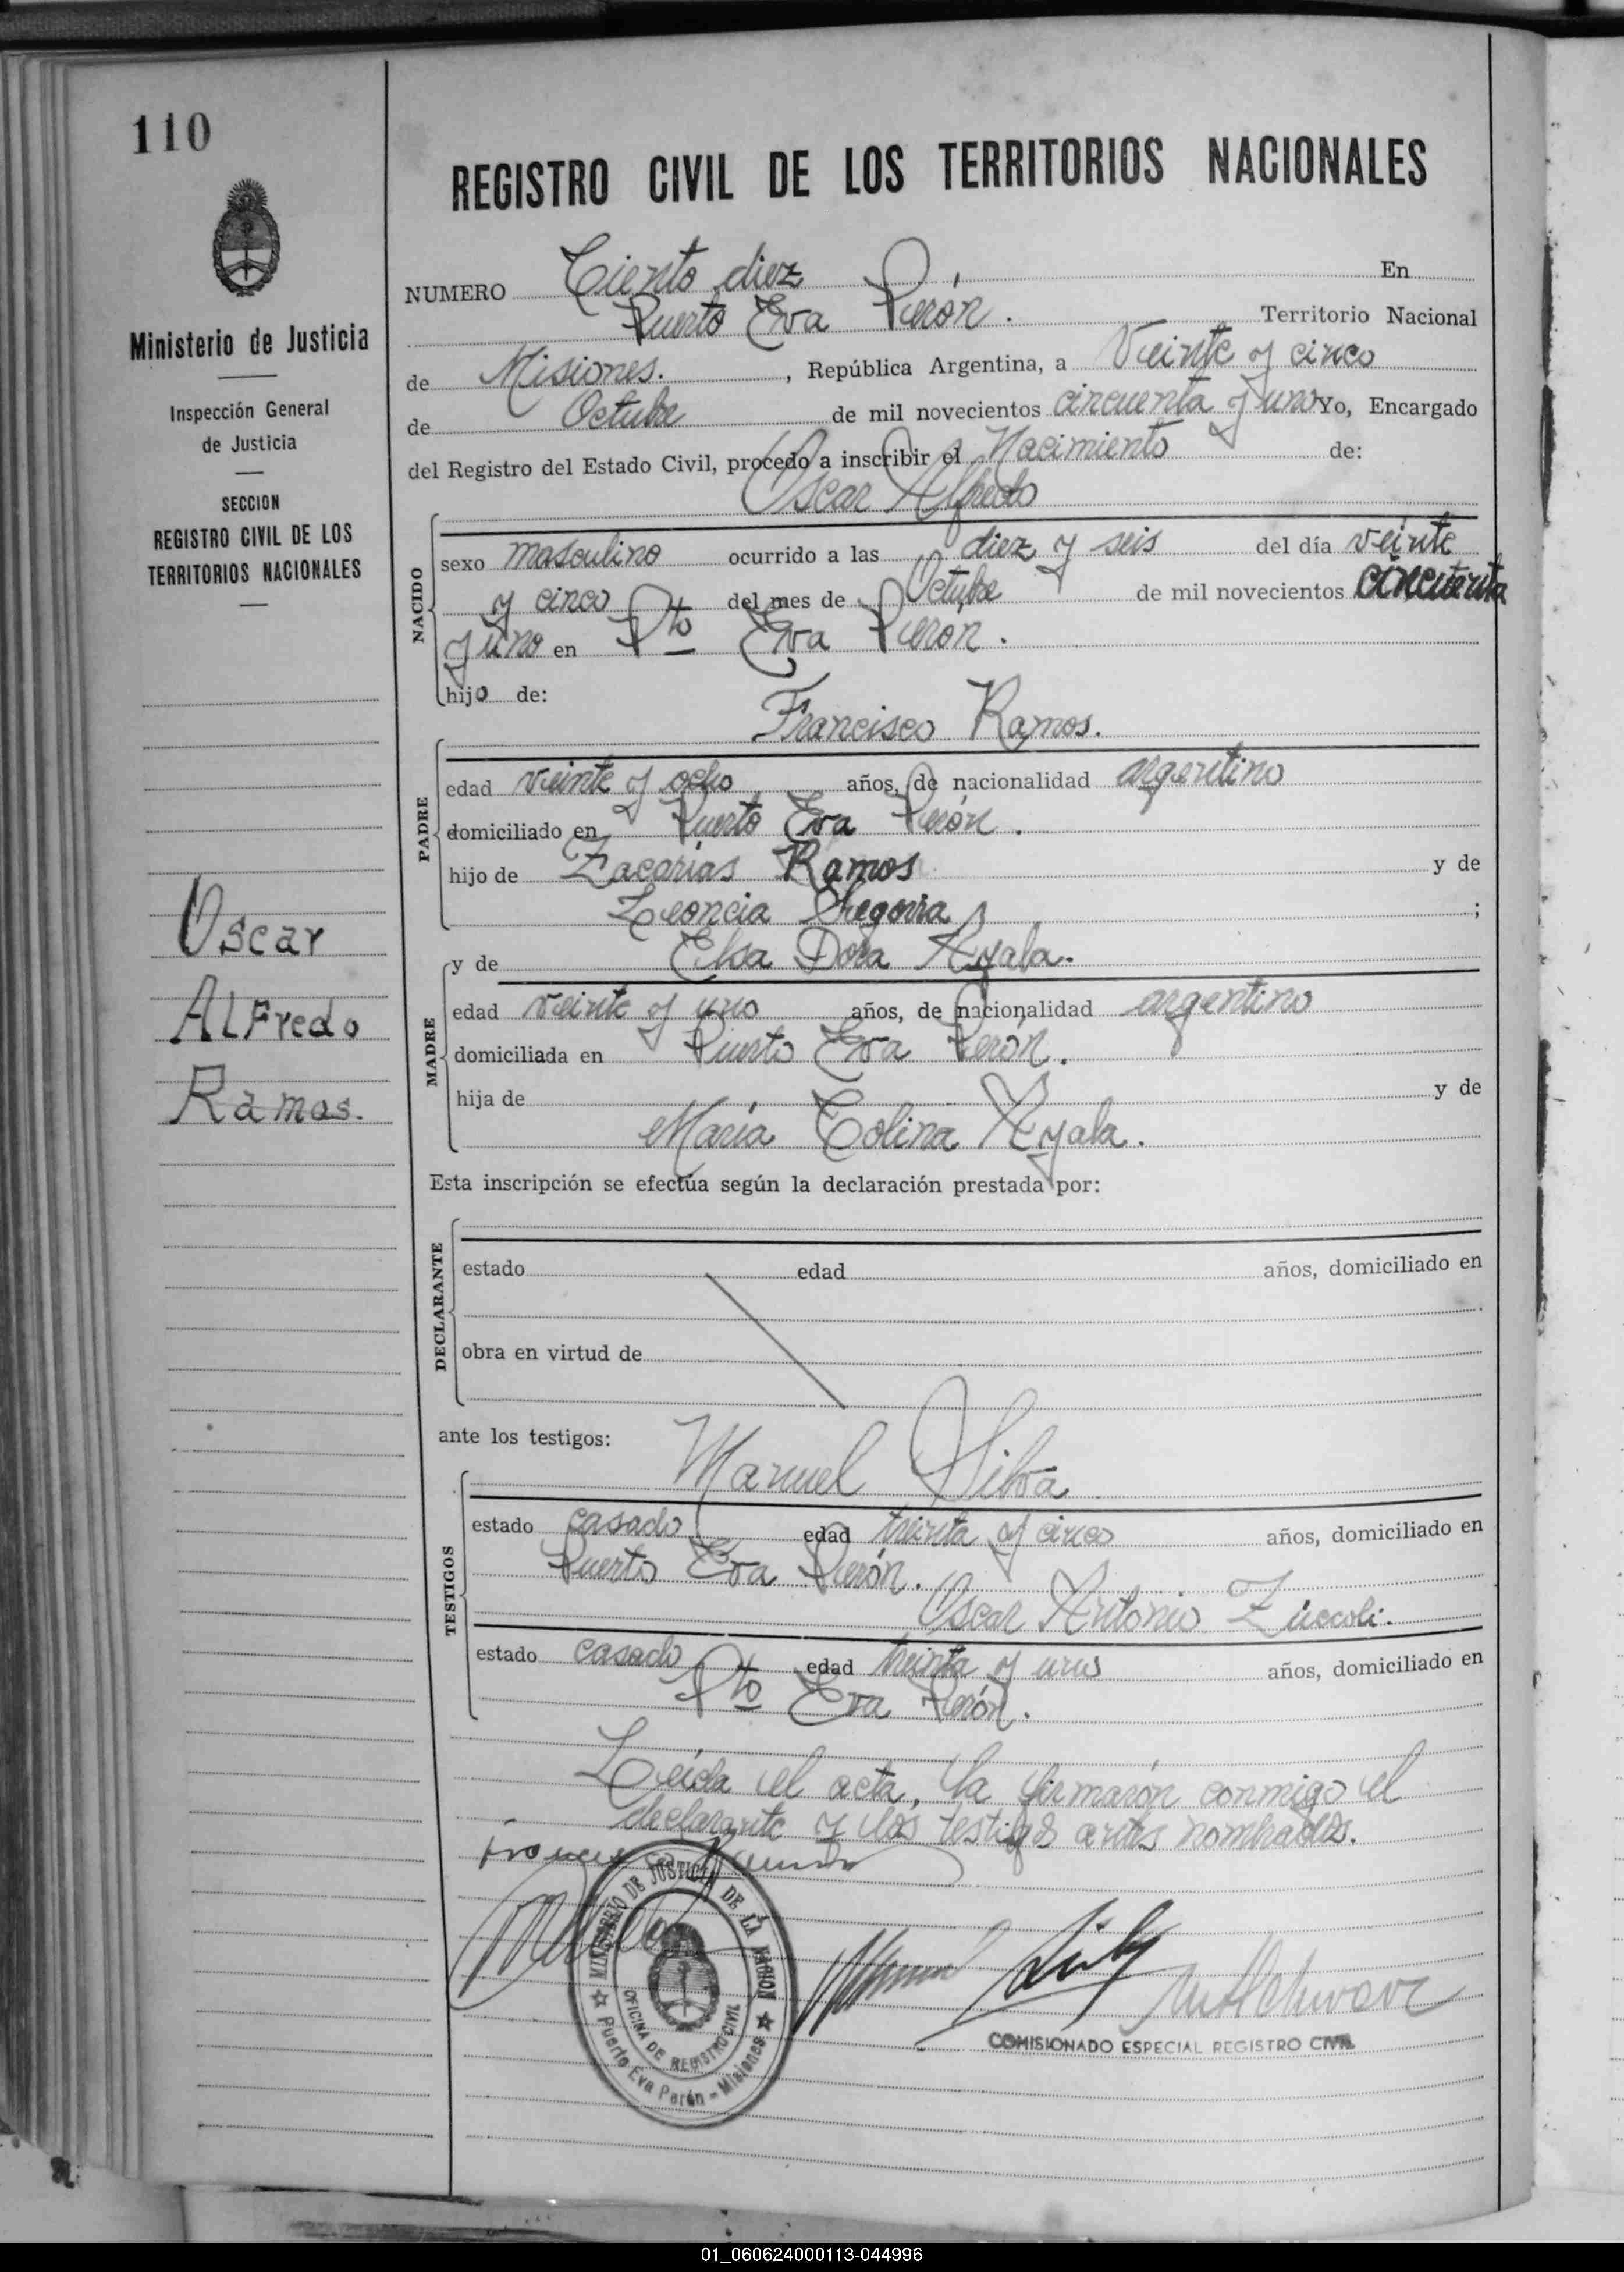 110
Ministerio de Justicia
Inspección General
de Justicia
SECCION
REGISTRO CIVIL DE LOS
TERRITORIOS NACIONALES
Oscar
Alfredo
Ramos.
REGISTRO CIVIL DE LOS TERRITORIOS NACIONALES
NUMERO Ciento diez En
Puerto Eva Perón. Territorio Nacional
de Misiones. , República Argentina, a Veinte y cinco
de Octubre de mil novecientos cincuenta y uno Yo, Encargado
del Registro del Estado Civil, procedo a inscribir el Nacimiento de:
Oscar Alfredo
NACIDO
sexo masculino ocurrido a las diez y seis del día veinte
y cinco del mes de Octubre de mil novecientos cincuenta
y uno en Pto Eva Perón.
hijo de:
Francisco Ramos.
PADRE
edad veinte y ocho años, de nacionalidad argentino
domiciliado en Puerto Eva Perón.
hijo de Zacarías Ramos y de
Leoncia ;
y de Elsa Dora Ayala.
MADRE
edad veinte y uno años, de nacionalidad argentino
domiciliada en Puerto Eva Perón.
hija de y de
María Colina Ayala.
Esta inscripción se efectúa según la declaración prestada por:
DECLARANTE
estado edad años, domiciliado en
obra en virtud de
ante los testigos:
Manuel Silva
TESTIGOS
estado casado edad treinta y cinco años, domiciliado en
Puerto Eva Perón.
Oscar Antonio Zuccoli.
estado casado edad treinta y uno años, domiciliado en
Pto Eva Perón.
Leída el acta, la firmarón conmigo el
declarante y los testigos antes nombrados.
MINISTERIO DE JUSTICIA DE LA NACION
OFICINA DE REGISTRO CIVIL
Puerto Eva Perón - Misiones
COMISIONADO ESPECIAL REGISTRO CIVIL
01_060624000113-044996